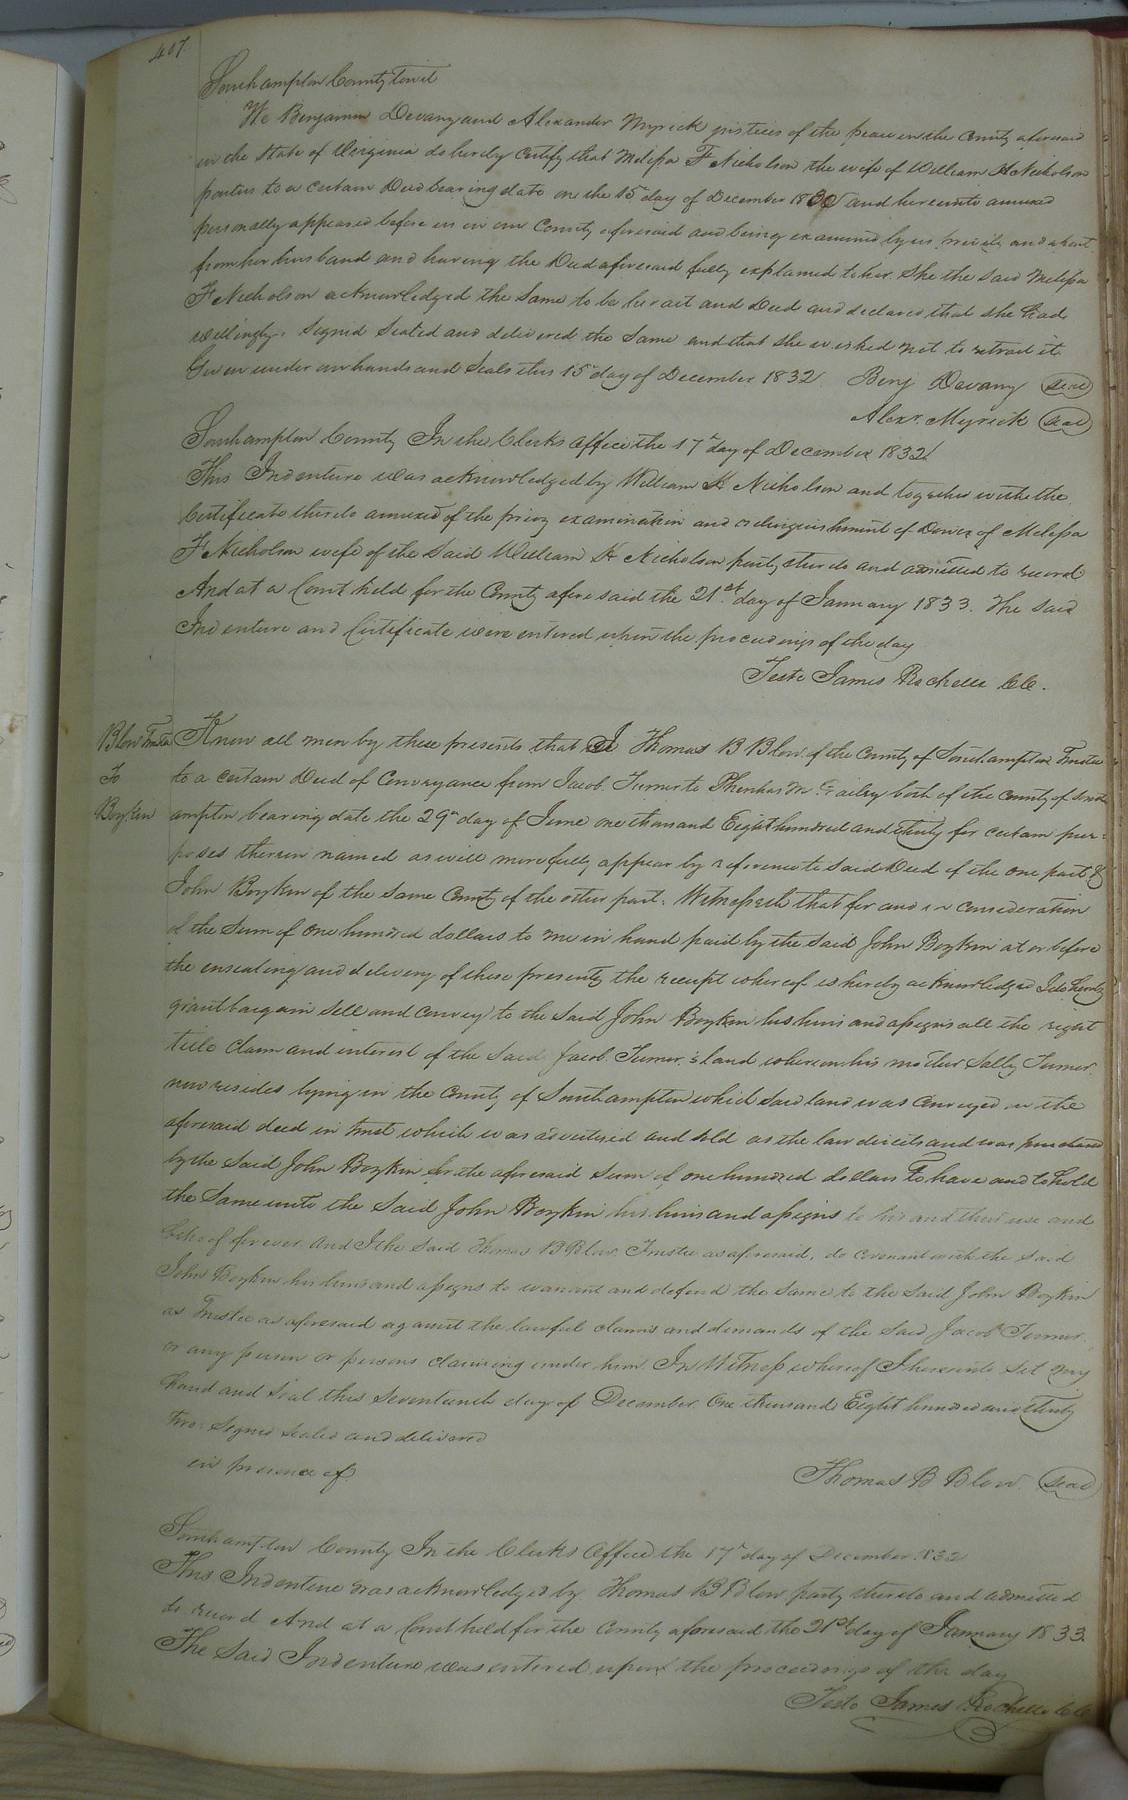 407.
Southampton County towit
We Benjamin Devany and Alexander Myrick justices of the peace in the County aforesaid
in the State of Virginia do hereby Certify that Melissa F Nicholson the wife of William H Nicholson
parties to a certain Deed bearing date on the 15th day of December 18 and hereunto annexed
personally appeared before us in our County aforesaid and being examined by us privily and apart
from her husband and having the Deed aforesaid fully explained to her. She the said Melissa
F Nicholson acknowledged the Same to be her act and Deed and declared that she had
willingly Signed Sealed and delivered the Same and that She wished not to retract it.
Given under our hands and Seals this 15th day of December 1832. Benj Devany (seal)
Alexr. Myrick (seal)
Southampton County In the Clerks Office the 17th day of December 1832
This Indenture was acknowledged by William H Nicholson and together with the
Certificate thereto annexed of the privy examination and relinquishment of Dower of Melissa
F Nicholson wife of the Said William H Nicholson party thereto and admitted to record
And at a Court held for the County aforesaid the 21st day of January 1833. The said
Indenture and Certificate were entered upon the proceedings of the day
Teste James Rochelle CC.
Blow Trustee
To
Boykin
Know all men by these presents that I Thomas B Blow of the County of Southampton Trustee
to a certain Deed of Conveyance from Jacob Turner to Phenhas M both of the County of South
ampton bearing date the 29th day of June one thousand Eight hundred and thirty for certain pur=
poses therein named as will more fully appear by reference to Said Deed of the one part &
John Boykin of the Same County of the other part. Witnesseth that for and in consideration
of the Sum of one hundred dollars to me in hand paid by the said John Boykin at or before
the ensealing and delivery of these presents the receipt whereof is hereby acknowledged I do hereby
grant bargain Sell and convey to the Said John Boykin his heirs and assigns all the right
title claim and interest of the Said Jacob Turner's land whereon his mother Sally Turner
now resides lying in the County of Southampton which Said land was conveyed in the
aforesaid deed in trust which was advertised and sold as the law directs and was purchased
by the Said John Boykin for the aforesaid Sum of one hundred dollars To have and to hold
the Same unto the Said John Boykin his heirs and assigns to his and their use and
behoof forever. And I the Said Thomas B Blow Trustee as aforesaid, do covenant with the said
John Boykin his heirs and assigns to warrant and defend the Same to the Said John Boykin
as Trustee as aforesaid against the lawful claims and demands of the Said Jacob Turner
or any person or persons claiming under him In Witness whereof I hereunto Set my
hand and Seal this Seventeenth day of December One thousand Eight hundred and thirty
two. Signed Sealed and delivered
in presence of
Thomas B Blow (seal)
Southampton County In the Clerks Office the 17th day of December 1832
This Indenture was acknowledged by Thomas B Blow party thereto and admitted
to record And at a Court held for the County aforesaid the 21st day of January 1833.
The Said Indenture was entered upon the proceedings of the day
Teste James Rochelle CC